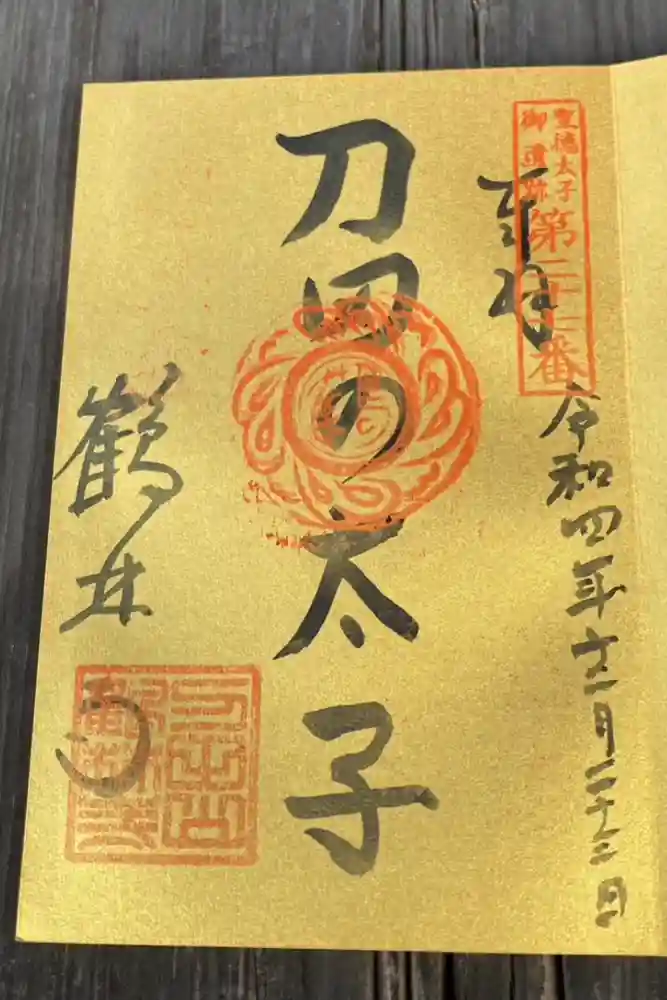 聖徳太子
御遺跡
第二十七番
奉拝
令和四年十二月二十二日
刀田の太子
鶴林